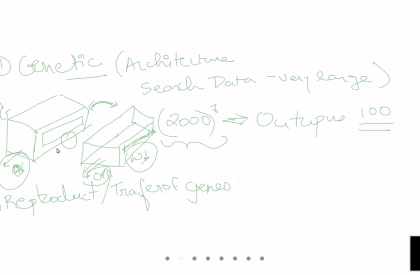 1) Genetic (Architecture
Search Data - very large)
(2000) ⇒ Outupus 100
Reproduct/Traferof genes